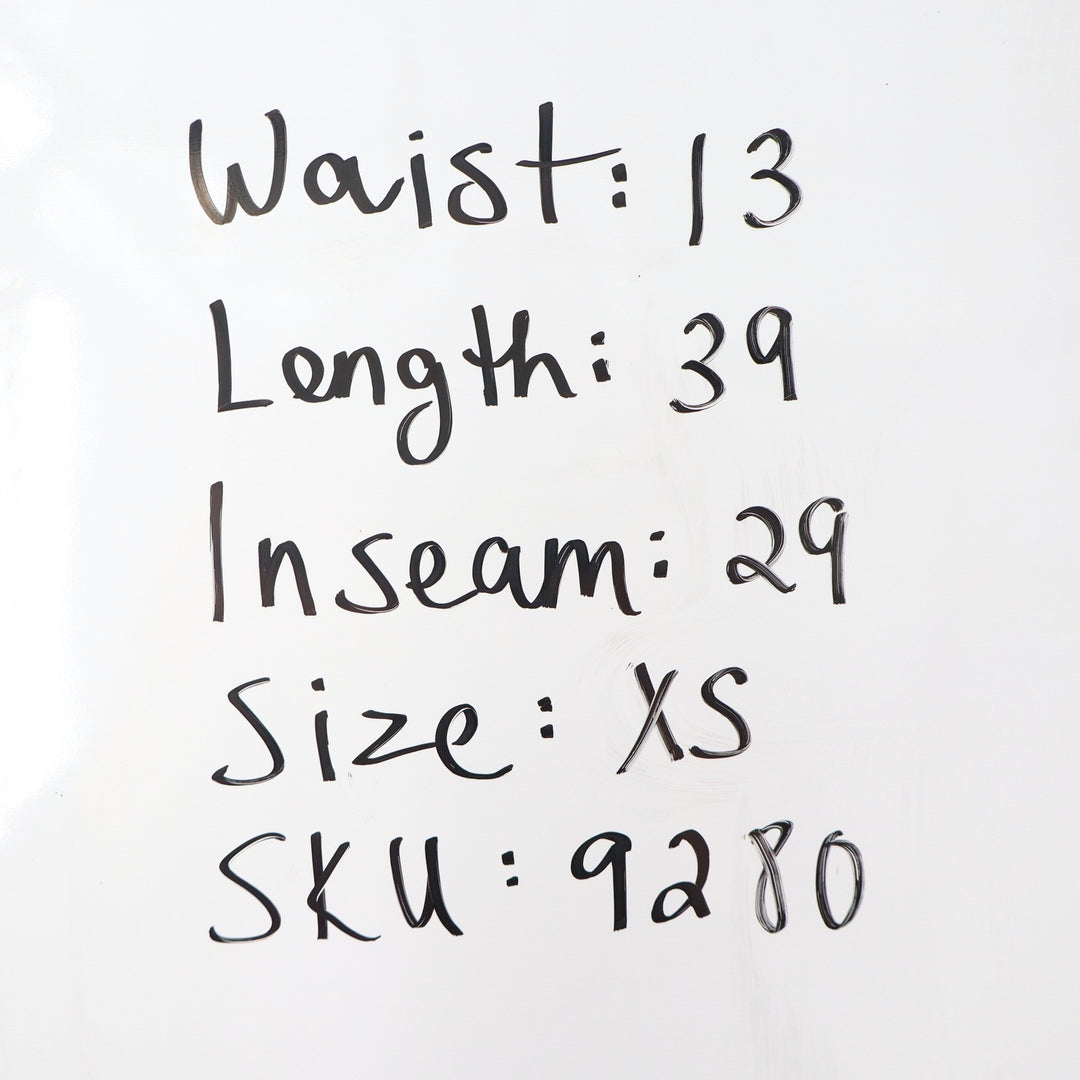 Waist: 13
Length: 39
Inseam: 29
Size: XS
SKU: 9280